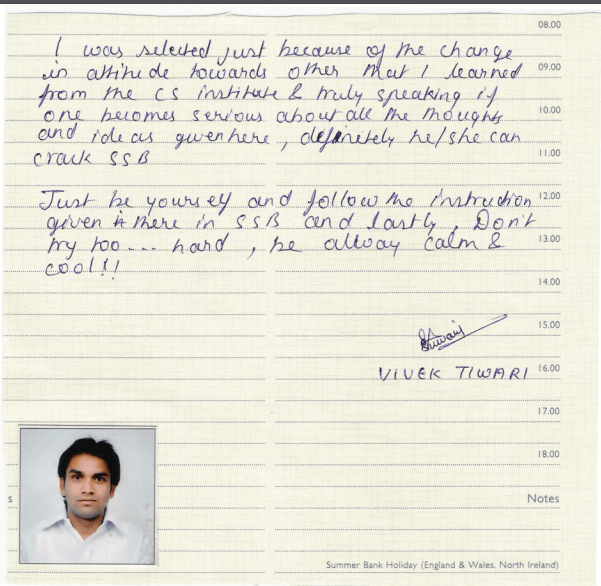 08.00
I was selected just because of the change
in attitude towards other that I learned
09.00
from the CS institute & truly speaking if
one becomes serious about all the thoughts
10.00
and ideas given here, definetely he/she can
crack SSB
11.00
Just be yourself and follow the instruction
12.00
given there in SSB and lastly, Don't
try too... hard, be allway calm &
13.00
cool!!
14.00
15.00
VIVEK TIWARI
16.00
17.00
18.00
s
Notes
Summer Bank Holiday (England & Wales, North Ireland)